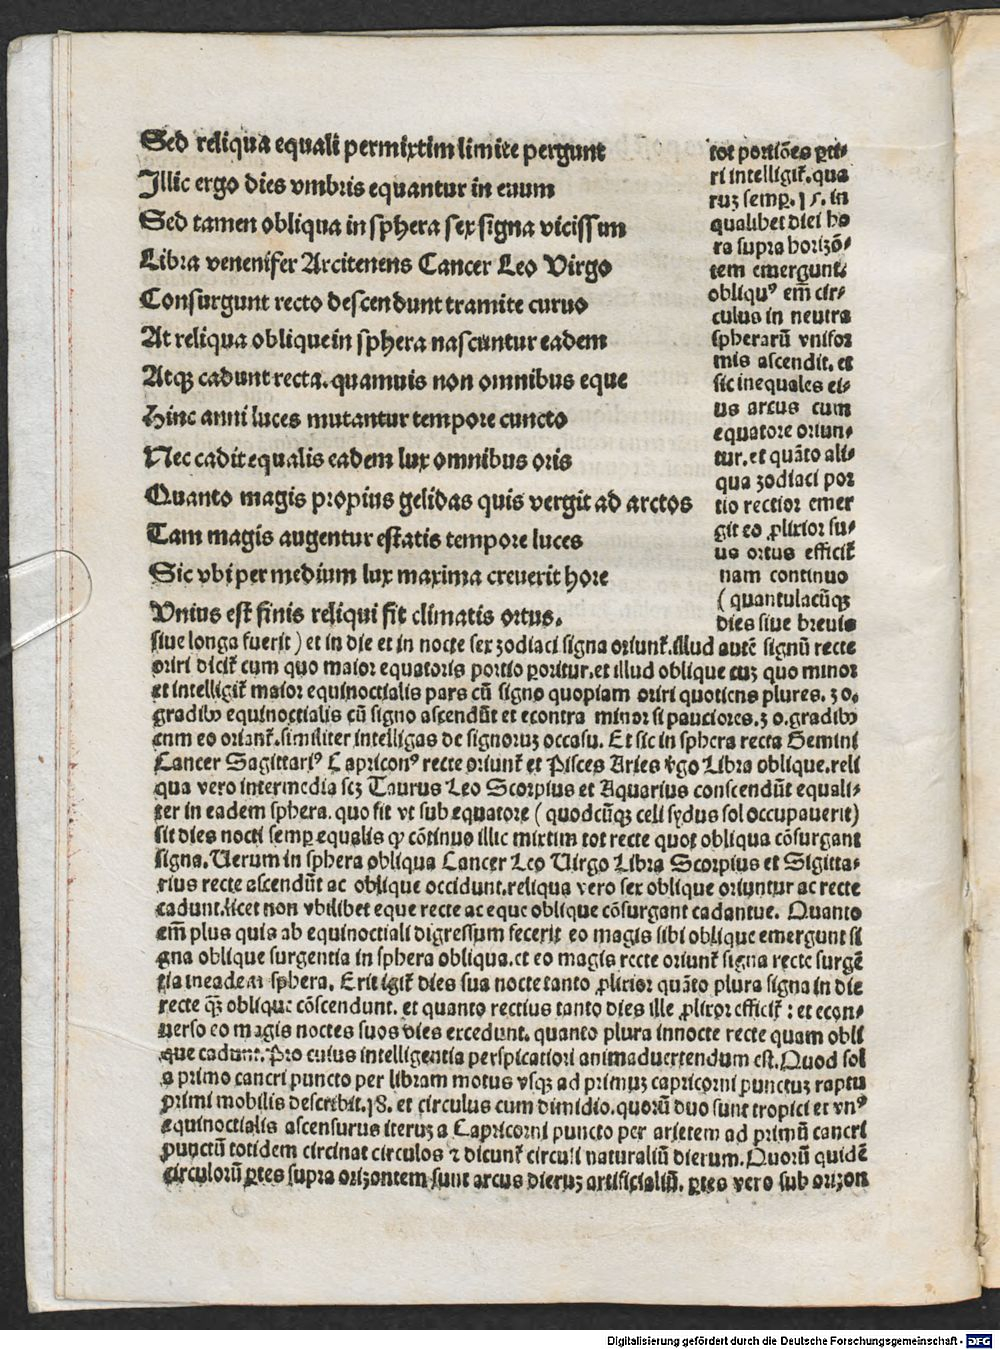 Sed reliqua equali permixtim limite pergunt
Illic ergo dies vmbris equantur in euum
Sed tamen obliqua in sphera sex signa vicissim
Libra venenifer Arcitenens Cancer Leo Virgo
Consurgunt recto descendunt tramite curuo
At reliqua oblique in sphera nascuntur eadem
Atqꝫ cadunt recta. quamuis non omnibus eque
Hinc anni luces mutantur tempore cuncto
Nec cadit equalis eadem lux omnibus oris
Quanto magis propius gelidas quis vergit ad arctos
Tam magis augentur estatis tempore luces
Sic vbi per medium lux maxima creuerit hore
Vnius est finis reliqui fit climatis ortus.
tot portiões ꝑti-
ri intelligit̃. qua
ruꝫ semꝑ. 15. in
qualibet diei ho
ra supra horizō-
tem emergunt.
obliquꝰ em̃ cir-
culus in neutra
spherarū vnifor
mis ascendit. et
sic inequales ei-
us arcus cum
equatore oriun-
tur. et quāto ali-
qua zodiaci por
tio rectior emer
git eo ꝓlixior su-
us ortus efficit̃
nam continuo
( quantulacūqꝫ
dies siue breuis
siue longa fuerit ) et in die et in nocte sex zodiaci signa oriunt̃. illud autē signū recte
oriri dicit̃ cum quo maior equatoris portio ꝑoritur. et illud oblique cuꝫ quo minor
et intelligit̃ maior equinoctialis pars cū signo quopiam oriri quotiens plures. 30.
gradibꝰ equinoctialis cū signo ascendūt et econtra minor si pauciores. 30. gradibꝰ
cum eo oriant̃. similiter intelligas de signoruꝫ occasu. Et sic in sphera recta Gemini
Cancer Sagittariꝰ Capriconꝰ recte oriunt̃ et Pisces Aries v̓go Libra oblique. reli
qua vero intermedia scꝫ Taurus Leo Scorpius et Aquarius conscendūt equali-
ter in eadem sphera. quo fit vt sub equatore ( quodcūqꝫ celi sydus sol occupauerit)
sit dies nocti semꝑ equalis ꝙ cōtinuo illic mixtim tot recte quot obliqua cōsurgant
signa. Uerum in sphera obliqua Cancer Leo Uirgo Libra Scorpius et Sigitta-
rius recte ascendūt ac oblique occidunt. reliqua vero sex oblique oriuntur ac recte
cadunt. licet non vbilibet eque recte ac eque oblique cōsurgant cadantue. Quanto
em̃ plus quis ab equinoctiali digressum fecerit eo magis sibi oblique emergunt si
gna oblique surgentia in sphera obliqua. et eo magis recte oriunt̃ signa recte surgē
tia in eadem sphera. Erit igit̃ dies sua nocte tanto ꝓlixior quāto plura signa in die
recte qꝫ̄ oblique cōscendunt. et quanto rectius tanto dies ille ꝓlixor efficit̃ : et econ-
uerso eo magis noctes suos dies excedunt. quanto plura in nocte recte quam obli
que cadunt. Pro cuius intelligentia perspicatiori animaduertendum est. Quod sol
a primo cancri puncto per libram motus vsqꝫ ad primuꝫ capricorni punctuꝫ raptu
primi mobilis describit. 18. et circulus cum dimidio. quorū duo sunt tropici et vnꝰ
equinoctialis ascensurus iteruꝫ a Capricorni puncto per arietem ad primū cancri
punctū totidem circinat circulos ⁊ dicunt̃ circuli naturaliū dierum. Quorū quidē
circulorū ꝑtes supra orizontem sunt arcus dieruꝫ artificialiū. ꝑtes vero sub orizon
Digitalisierung gefördert durch die Deutsche Forschungsgemeinschaft - DFG